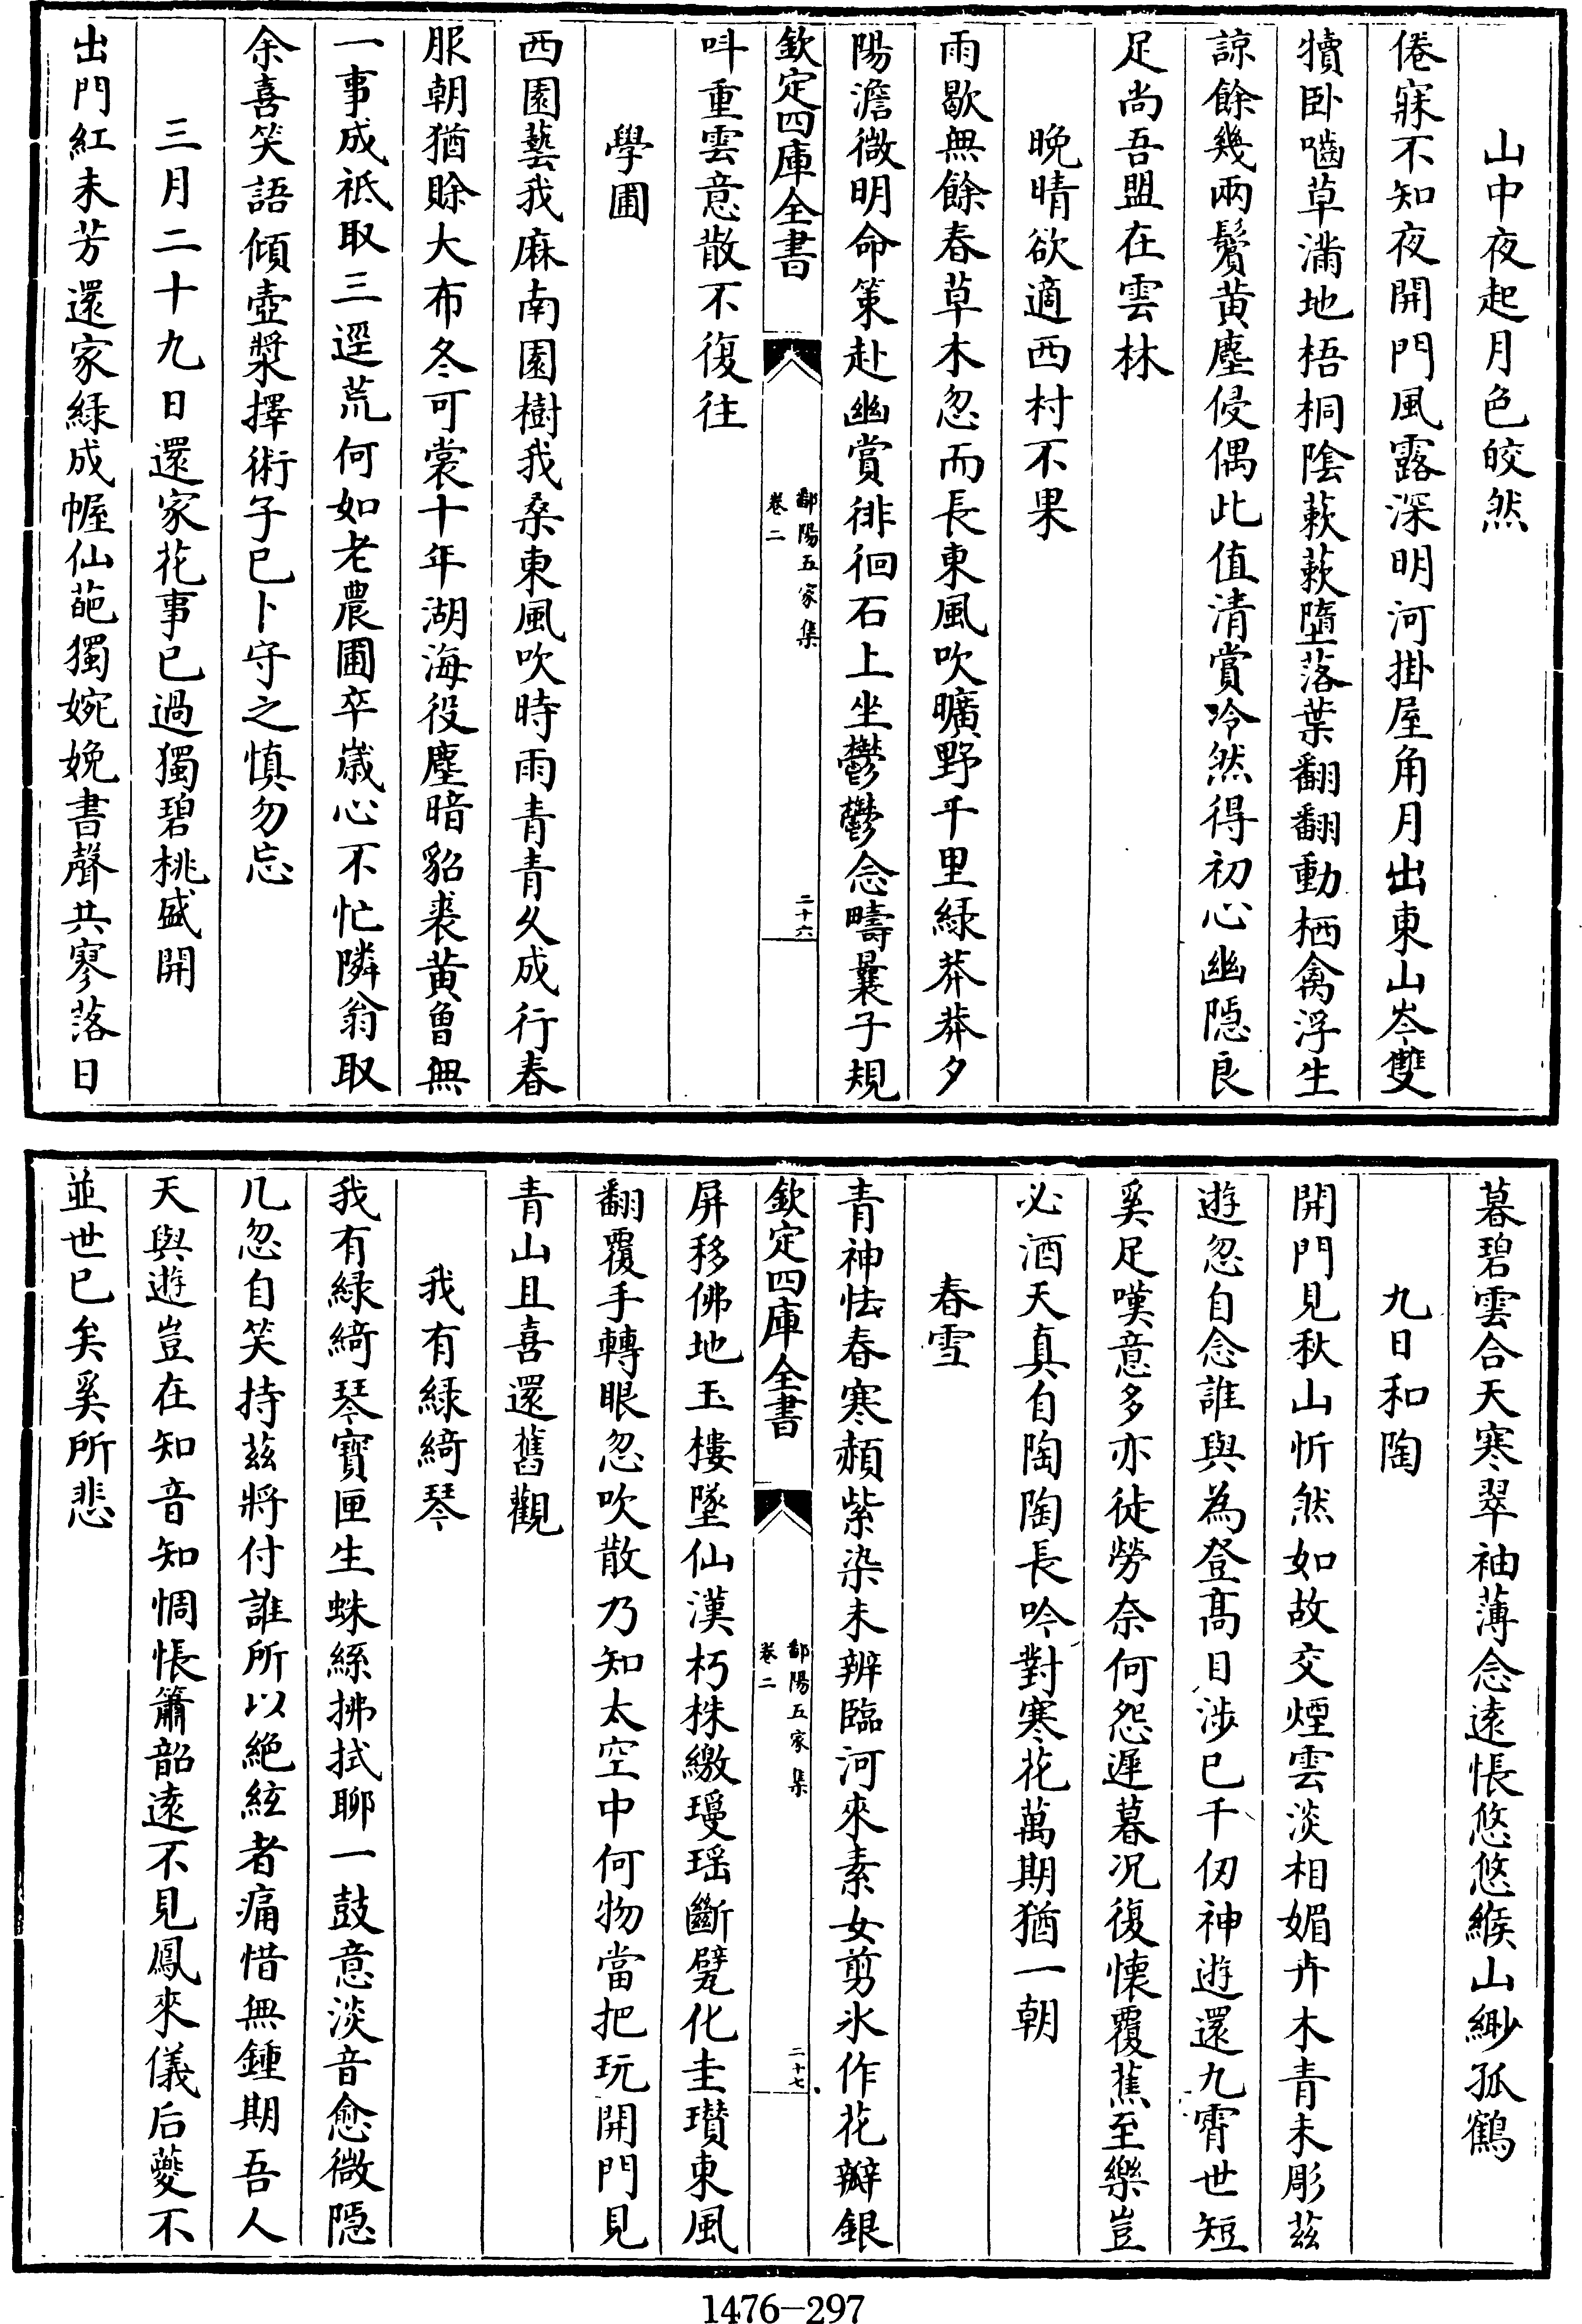 山中夜起月色皎然
倦寐不知夜開門風露深明河掛屋角月出東山岑雙
犢卧嚙草滿地梧桐陰蔌蔌墮落葉翻翻動栖禽浮生
諒餘幾兩鬢黄塵侵偶此值清賞冷然得初心幽隱良
足尚吾盟在雲林
晚晴欲適西村不果
雨歇無餘春草木忽而長東風吹曠野千里緑莽莽夕
陽澹微明命策赴幽賞徘徊石上坐鬱鬱念疇曩子規
欽定四庫全書
鄱陽五家集
卷二
二十六
呌重雲意散不復往
學圃
西園藝我麻南園樹我桑東風吹時雨青青久成行春
服朝猶賒大布冬可裳十年湖海役塵暗貂裘黄曾無
一事成祗取三逕荒何如老農圃卒歳心不忙隣翁取
余喜笑語傾壺漿擇術子已卜守之慎勿忘
三月二十九日還家花事已過獨碧桃盛開
出門紅未芳還家緑成幄仙葩獨婉娩書聲共寥落日
暮碧雲合天寒翠袖薄念遠悵悠悠緱山緲孤鶴
九日和陶
開門見秋山忻然如故交煙雲淡相媚卉木青未彫兹
遊忽自念誰與為登髙目涉已千仭神遊還九霄世短
奚足嘆意多亦徒勞奈何怨遲暮况復懐覆蕉至樂豈
必酒天真自陶陶長吟對寒花萬期猶一朝
春雪
青神怯春寒頳紫染未辨臨河來素女剪氷作花瓣銀
欽定四庫全書
鄱陽五家集
卷二
二十七
屏移佛地玉樓墜仙漢朽株繳璦瑶斷甓化圭瓉東風
翻覆手轉眼忽吹散乃知太空中何物當把玩開門見
青山且喜還舊觀
我有緑綺琴
我有緑綺琴寳匣生蛛絲拂拭聊一鼓意淡音愈微隱
几忽自笑持兹將付誰所以絶絃者痛惜無鍾期吾人
天與遊豈在知音知惆悵簫韶遠不見鳳來儀后夔不
並世已矣奚所悲
1476-297